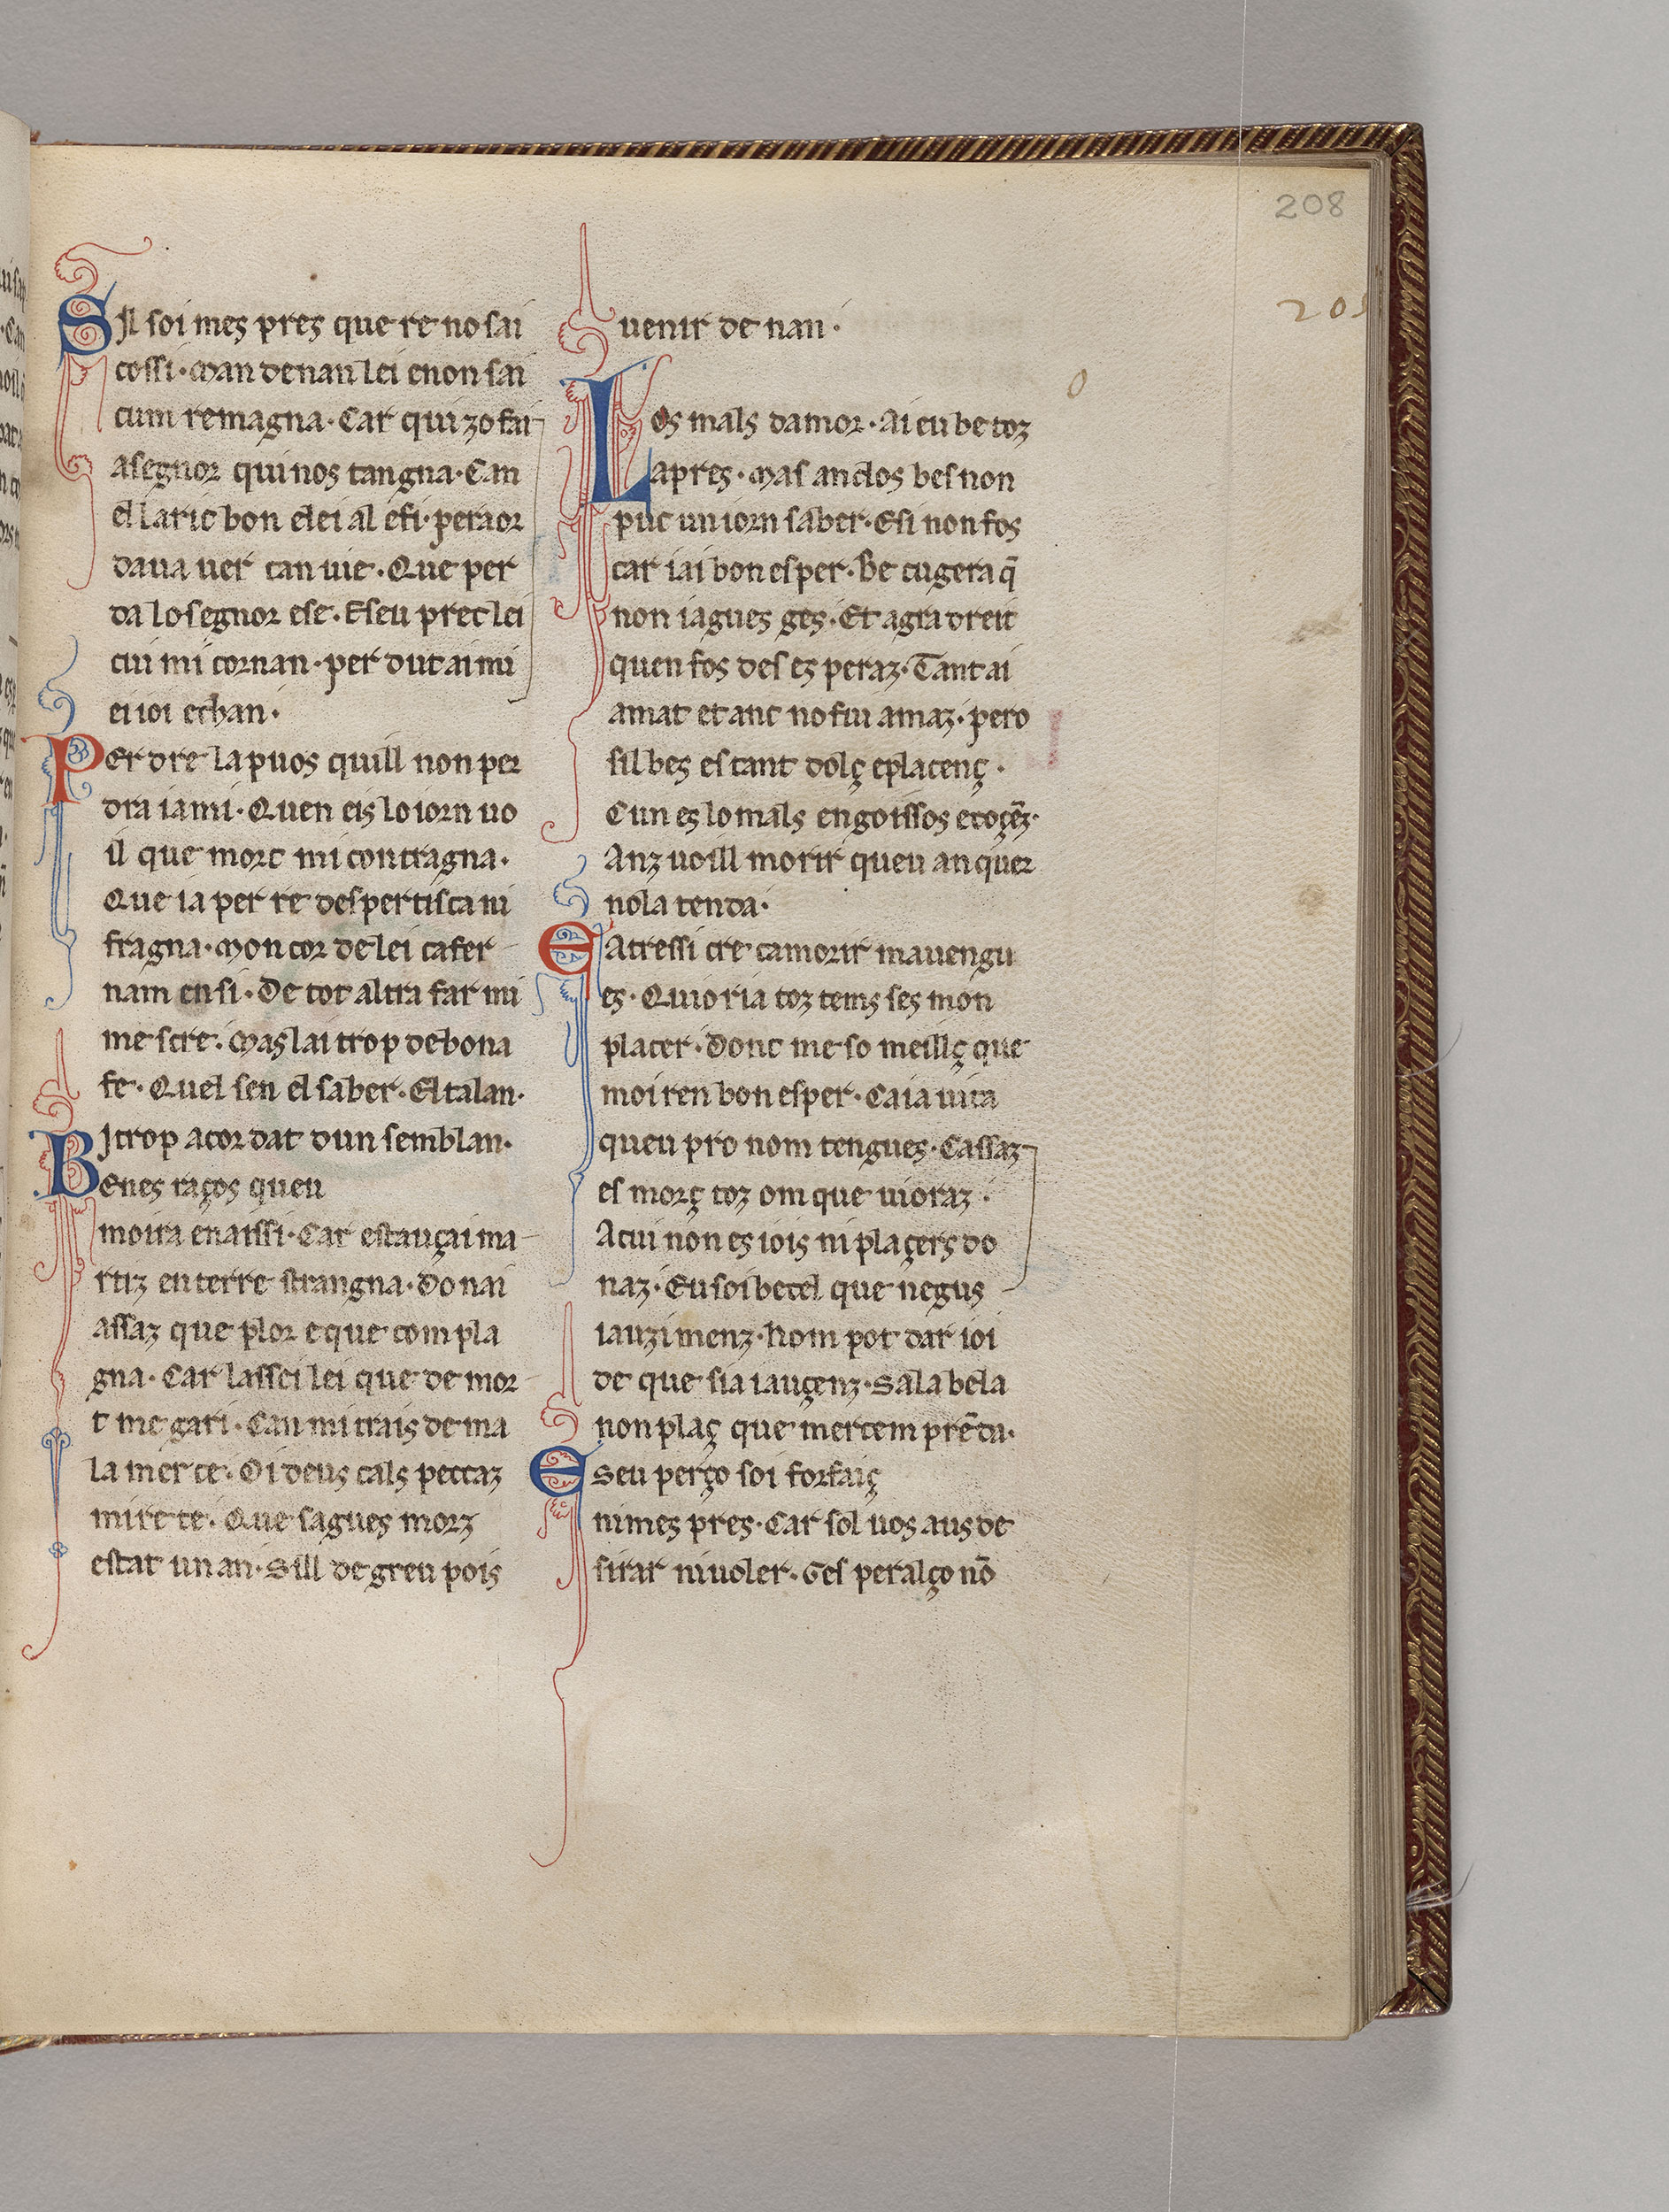 208
205
Sil soi mes pres que re no sai
cossi · Man denan lei enon sai
cum remagna · Car qui zo fai
asegnor qui nos tangna · Can
el laric bon elei al efi · peraor
daua uer tan uie · Que per
da lo segnor ese · E seu prec lei
cui mi cornan · per dutai mi
ei ioi echan ·
Perdre la puos quill non per
dra ia mi · Quen eis lo iorn uo
il que mort mi contragna ·
Que ia per re despertisca ni
fragna · Mon cor de lei cafer
nam en si · De tot altra far mi
mescre · Mas lai trop de bona
fe · Quel sen el saber · El talan ·
Bi trop acordat dun semblan ·
Enes raços queu
moira enaissi · Car estauçai ma
rtiz en terre strangna · Donai
assaz que plor e que compla
gna · Car lassei lei que de mor
t me gari · Can mi trais de ma
la merce · Oi deus cals peccaz
mirete · Que sagues morz
estat un an · Sill de greu pois
uenir de nan ·
0
Los mals damor · Ai eu be toz
apres · Mas anclos bes non
puc un iorn saber · Esi non fos
car iai bon esper · Be cugera q̄
non iagues ges · Et agra dreit
quen fos des es peraz · Tant ai
amat et anc no fui amaz · pero
sil bes es tant dolç eplacenç ·
Cun es lo mals engoissos ecoçēz ·
Anz uoill morir queu anquer
nola tenda ·
Eatressi cre camorir mauengu
es · Quioria toz tems ses mon
placer · Donc me so meillç que
moiren bon esper · Caia uita
queu pro nom tengues · Cassaz
es morç toz om que uioraz ·
Acui non es iois ni plaçers do
naz · Eu soi betel que negus
iauzimenz · hom pot dar ioi
de que sia iauçenz · Sala bela
non plaç que mercem prēda ·
Eseu perço soi forfaiç
nimes pres · Car sol uos aus de
sirar niuoler · Ges peralço nō